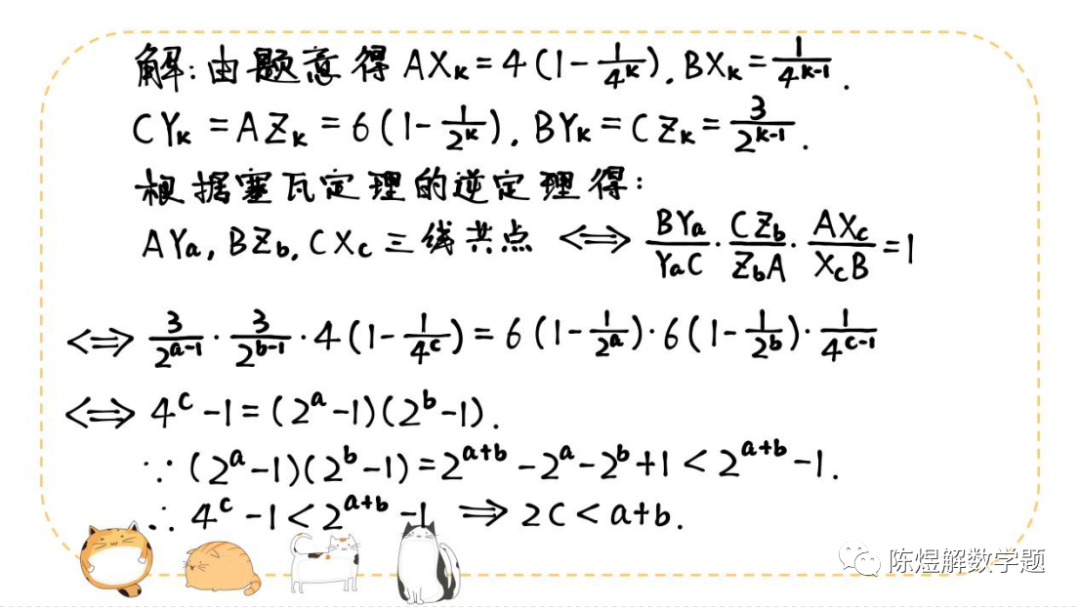 解:由题意得 AXₖ=4(1-1/4ᵏ), BXₖ=1/4ᵏ⁻¹.
CYₖ=AZₖ=6(1-1/2ᵏ), BYₖ=CZₖ=3/2ᵏ⁻¹.
根据塞瓦定理的逆定理得:
AYa, BZb, CXc 三线共点 <=> BYa/YaC · CZb/ZbA · AXc/XcB =1
<=> 3/2^(a-1) · 3/2^(b-1) · 4(1-1/4^c) = 6(1-1/2^a)·6(1-1/2^b)·1/4^(c-1)
<=> 4^c-1=(2^a-1)(2^b-1).
∵(2^a-1)(2^b-1)=2^(a+b)-2^a-2^b+1<2^(a+b)-1.
∴4^c-1<2^(a+b)-1 => 2c<a+b.
陈煜解数学题